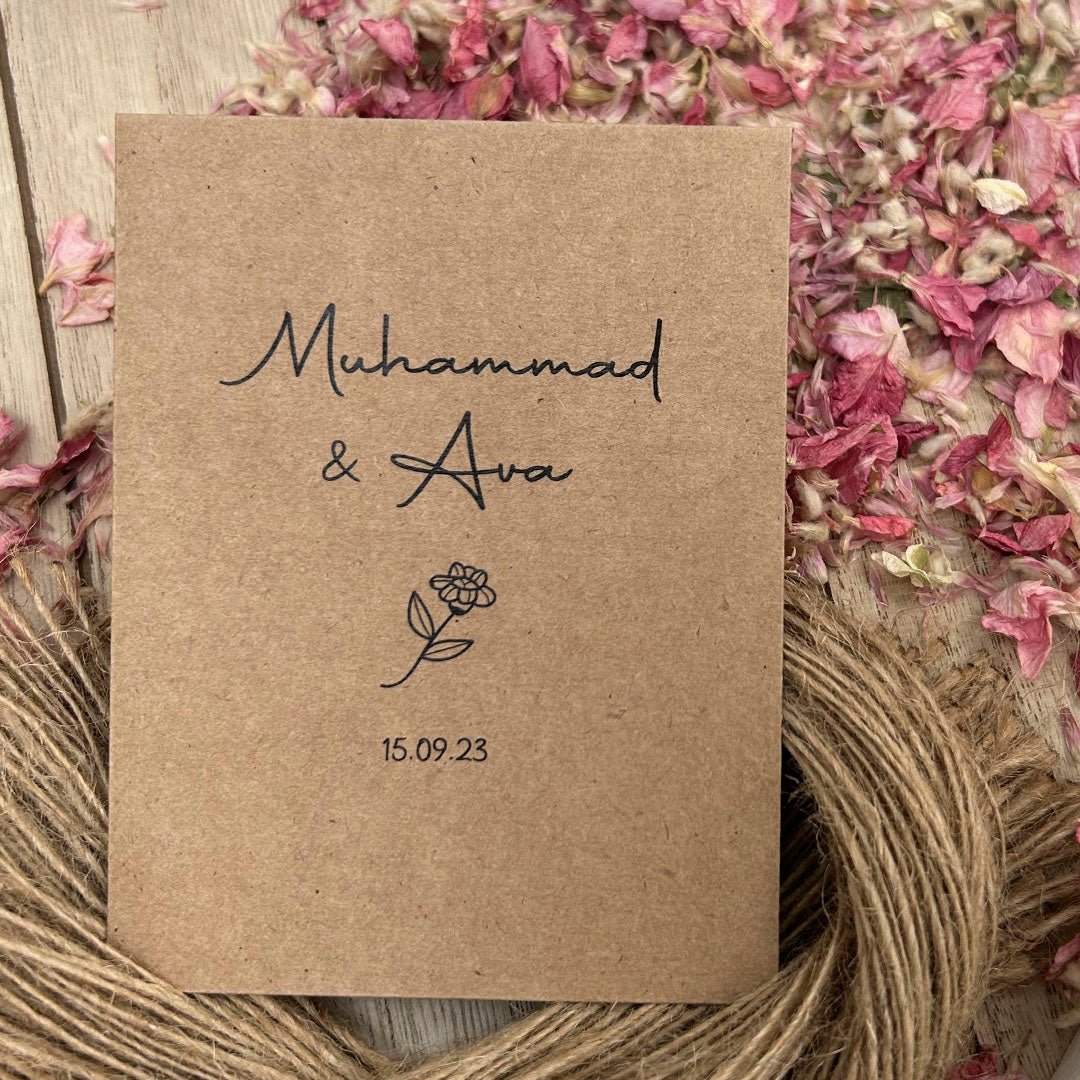 Muhammad
& Ava
15.09.23